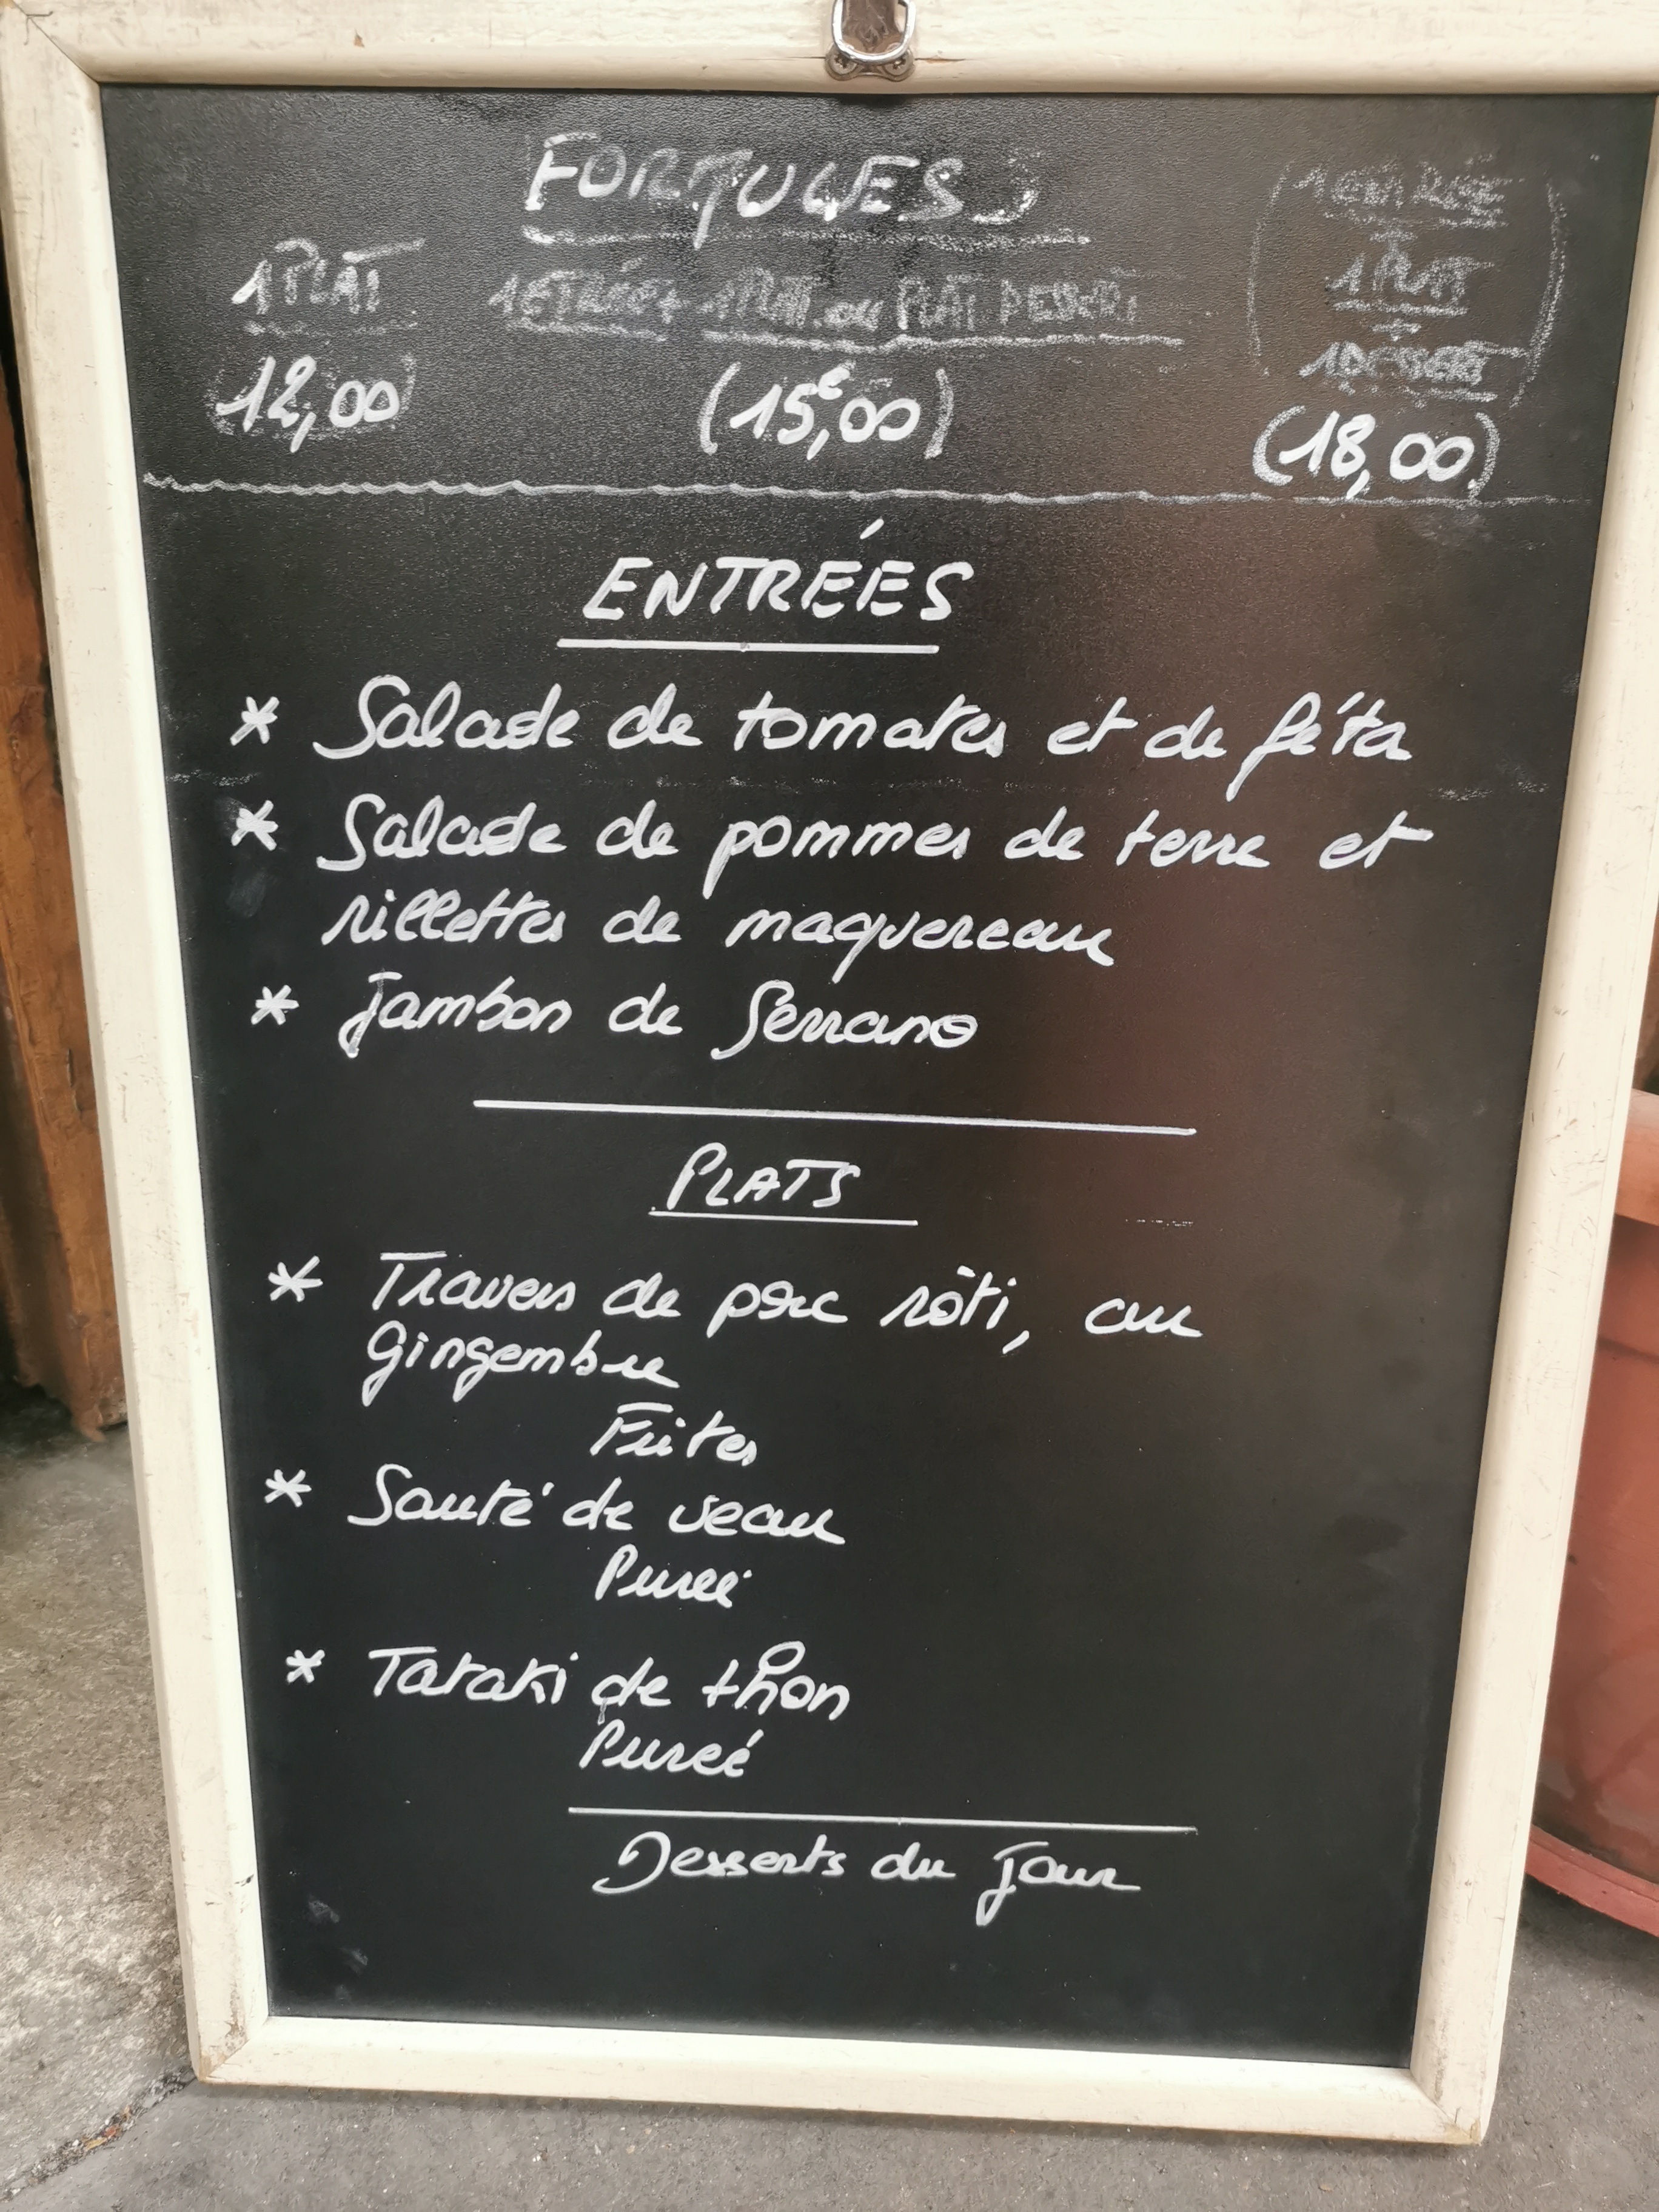 FORMULES
1 PLAT
1 ENTRÉE + 1 PLAT ou PLAT DESSERT
1 ENTRÉE
+
1 PLAT
+
1 DESSERT
12,00
(15€,00)
(18,00)
ENTRÉES
* Salade de tomates et de féta
* Salade de pommes de terre et
rillettes de maquereau
* Jambon de Serrano
PLATS
* Travers de porc rôti, au
gingembre
Frites
* Sauté de veau
Pureé
* Tataki de thon
Pureé
Desserts du jour